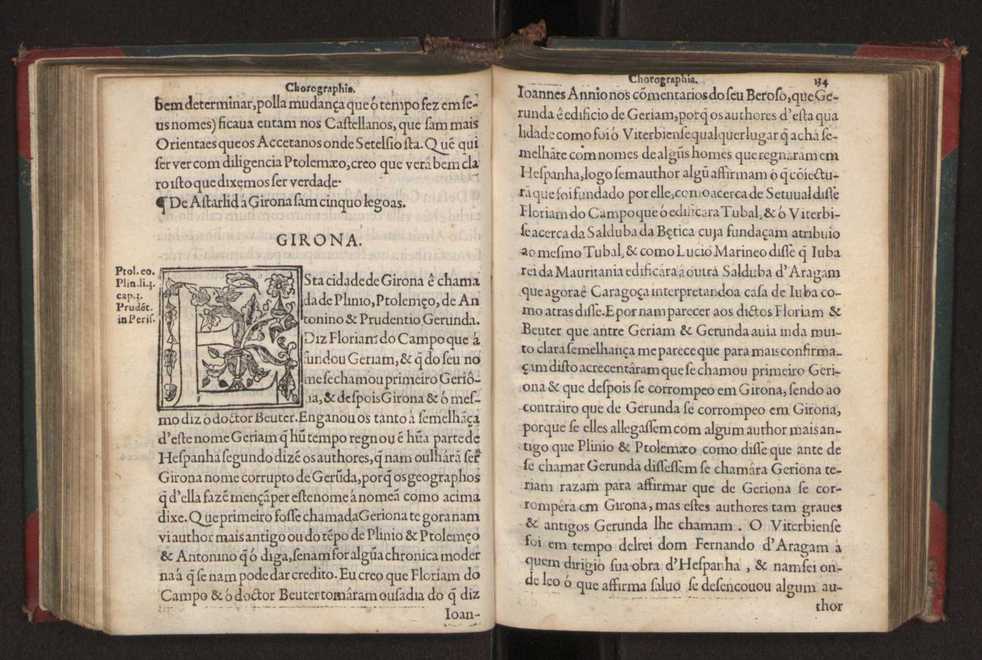 Chorographia.
bem determinar, polla mudança que ó tempo fez em se-
us nomes) ficaua entam nos Castellanos, que sam mais
Orientaes que os Accetanos onde Setelsio sta. Quē qui
ser ver com diligencia Ptolemæo, creo que verá bem cla
ro isto que dixemos ser verdade.
¶ De Astarlid á Girona sam cinquo legoas.
GIRONA.
Ptol. eo.
Plin. li.4.
cap.4.
Prudēt.
in Peris.
ESta cidade de Girona ê chama
da de Plinio, Ptolemęo, de An
tonino & Prudentio, Gerunda.
Diz Floriam do Campo que á
fundou Geriam, & q̃ do seu no
me se chamou primeiro Geriô-
na, & despois Girona & ó mes-
mo diz ó doctor Beuter. Enganou os tanto á semelhãça
d'este nome Geriam q̃ hũ tempo regnou ẽ hũa parte de
Hespanha segundo dizē os authores, q̃ nam oulhárã ser
Girona nome corrupto de Gerũda, porq̃ os geographos
q̃ d'ella fazē mençã per este nome á nomeã como acima
dixe. Que primeiro fosse chamada Geriona te gora nam
vi author mais antigo ou do tēpo de Plinio & Ptolemęo
& Antonino q̃ ó diga, senam for algũa chronica moder
na á q̃ se nam pode dar credito. Eu creo que Floriam do
Campo & ó doctor Beuter tomáram ousadia do q̃ diz
Ioan-
Chorographia. 134
Ioannes Annio nos cōmentarios do seu Beroso, que Ge-
runda ê edificio de Geriam, porq̃ os authores d'esta qua
lidade como foi ó Viterbiense qualquer lugar q̃ achã se-
melhãte com nomes de algũs homēs que regnáram em
Hespanha, logo sem author algũ affirmam ó q̃ cōiectu-
rã que foi fundado por elle, como acerca de Setuual disse
Floriam do Campo que ó edificára Tubal, & ó Viterbi-
se acerca da Salduba da Bętica cuja fundaçam atribuio
ao mesmo Tubal, & como Lucio Marineo disse q̃ Iuba
rei da Mauritania edificára á outra Salduba d'Aragam
que agora ê Caragoça interpretandoa casa de Iuba co-
mo atras disse. E por nam parecer aos dictos Floriam &
Beuter que antre Geriam & Gerunda auia inda mui-
to clara semelhança me parece que para mais confirma-
çam disto acrecentáram que se chamou primeiro Geri-
ona & que despois se corrompeo em Girona, sendo ao
contrairo que de Gerunda se corrompeo em Girona,
porque se elles allegassem com algum author mais an-
tigo que Plinio & Ptolemæo como disse que ante de
se chamar Gerunda dissessem se chamára Geriona te-
riam razam para affirmar que de Geriona se cor-
rompêra em Girona, mas estes authores tam graues
& antigos Gerunda lhe chamam. O Viterbiense
foi em tempo delrei dom Fernando d'Aragam á
quem dirigio sua obra d'Hespanha, & nam sei on-
de leo ó que affirma saluo se desencouou algum au-
thor